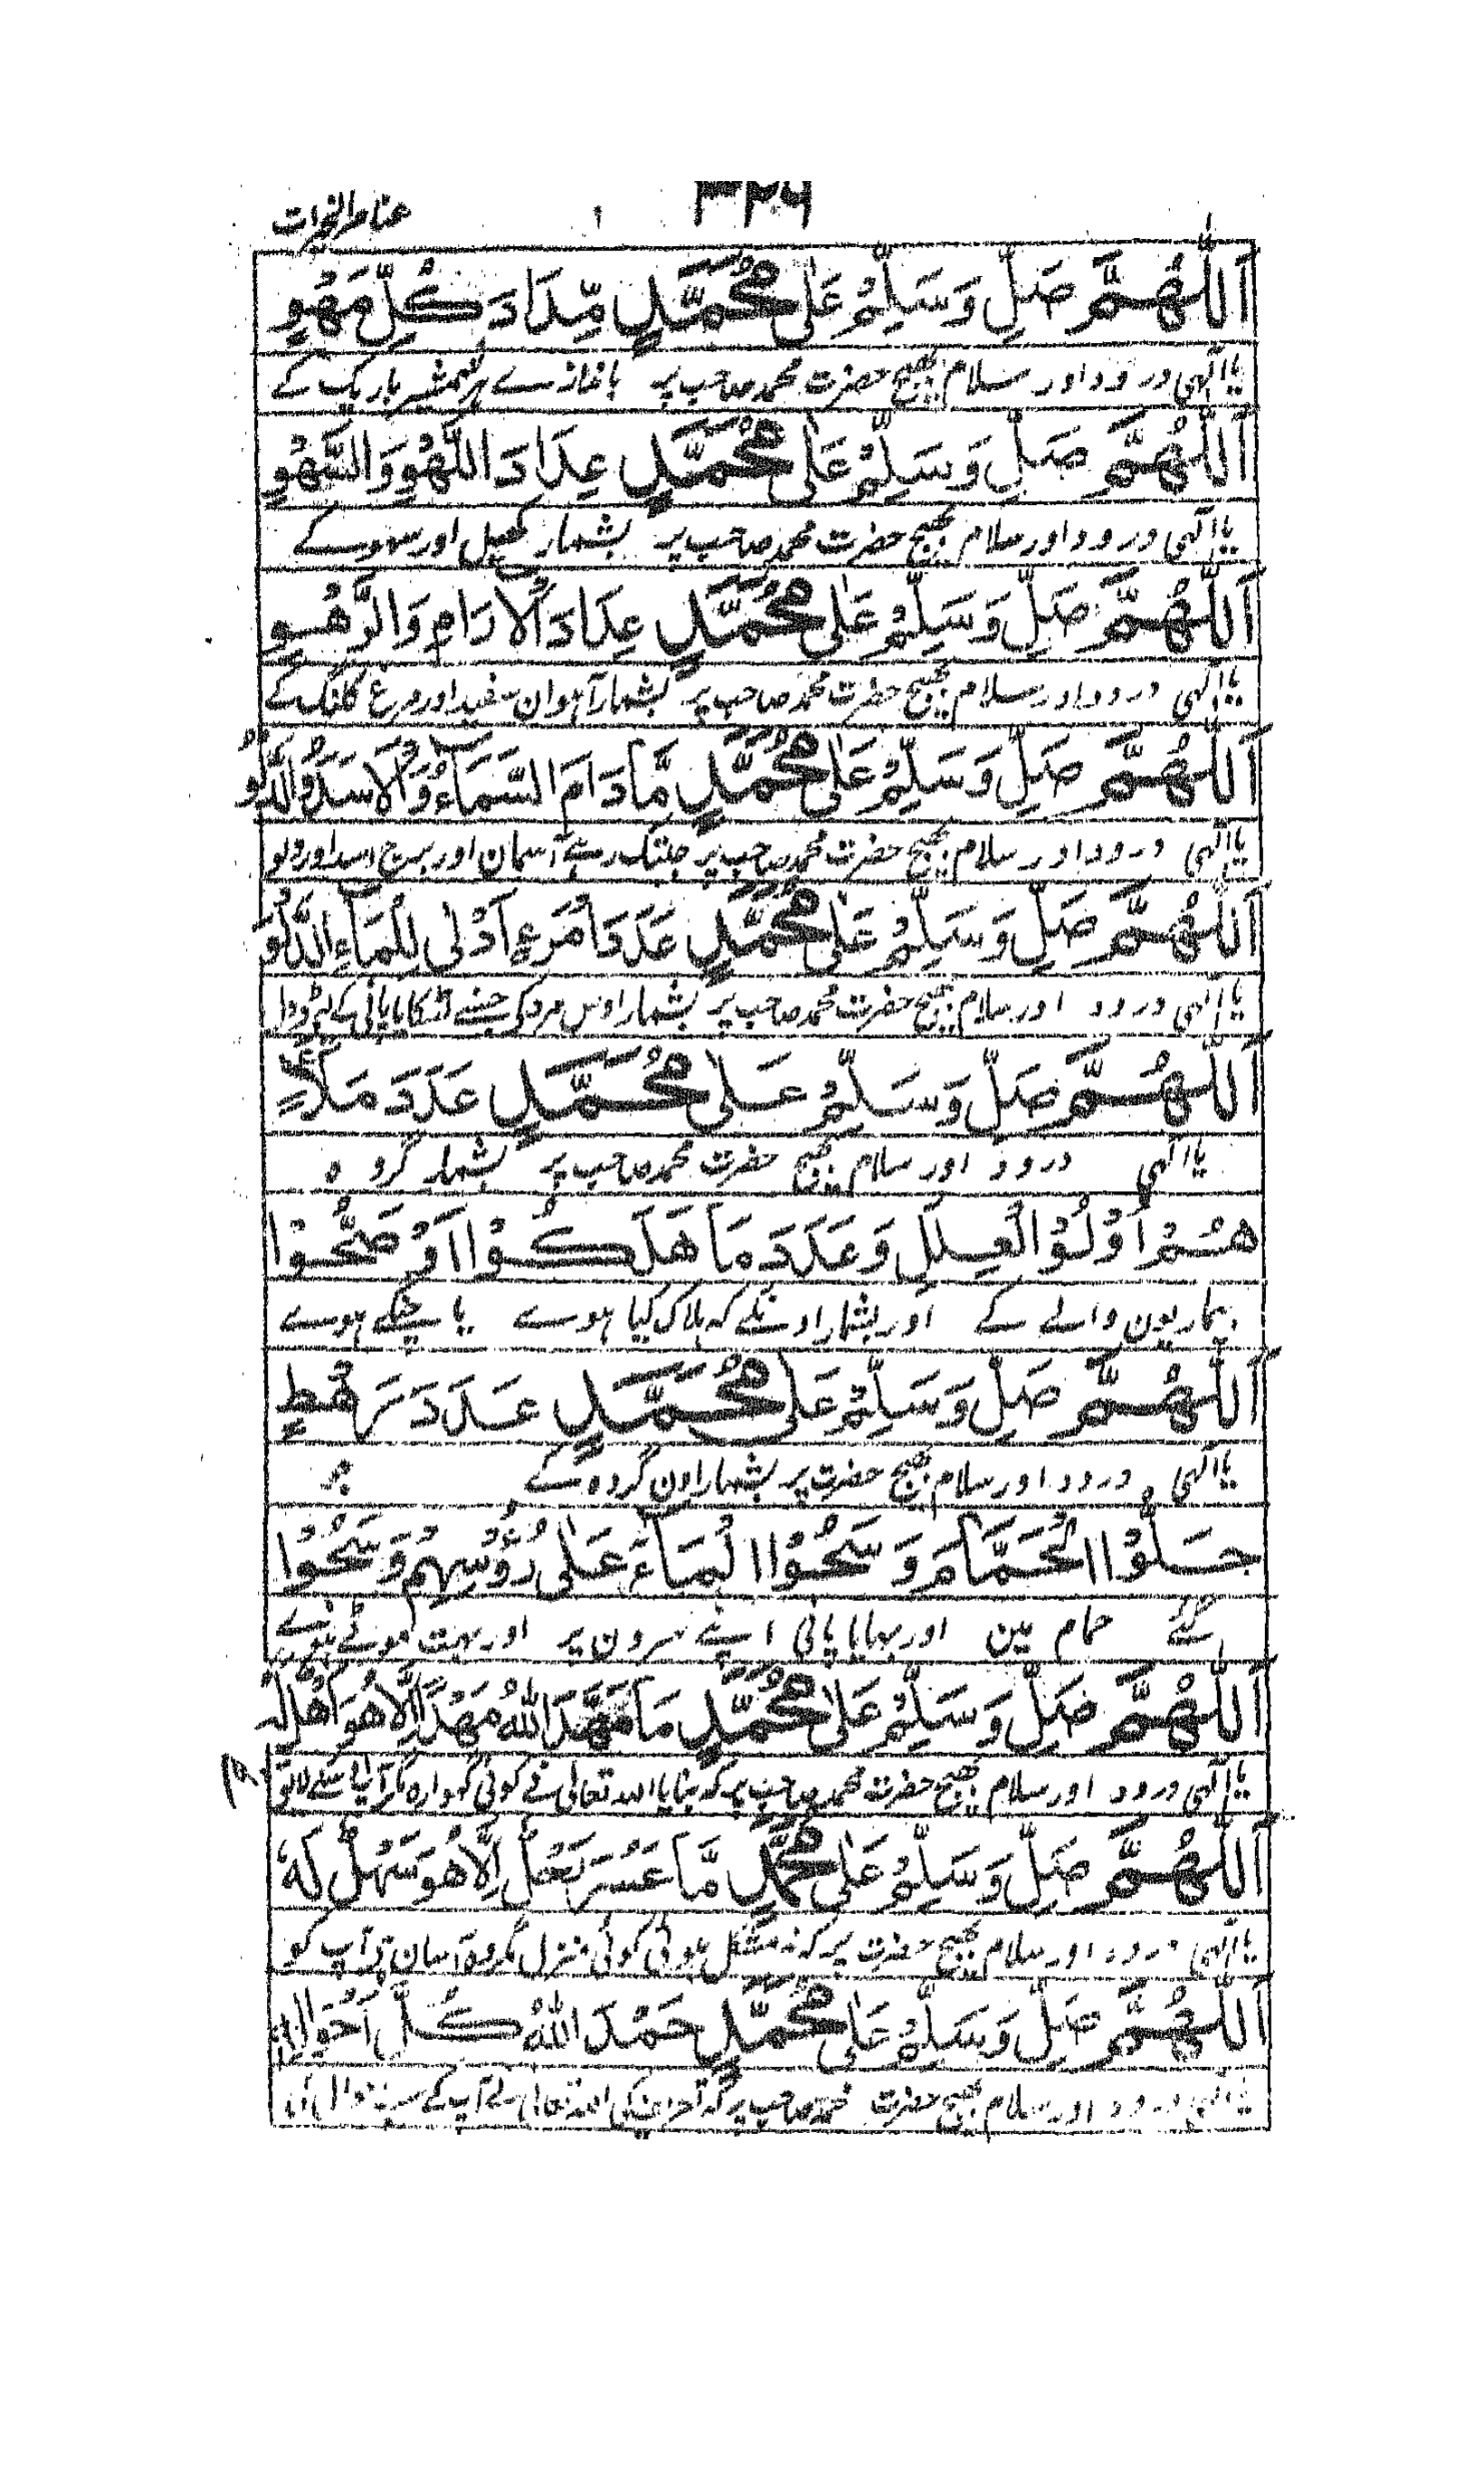 ۳۲۶
عناصر الخیرات
اَللّٰهُمَّ صَلِّ وَسَلِّمْ عَلٰى مُحَمَّدٍ مِّدَادَ كُلِّ مَهْوٍ
یا الٰہی درود اور سلام بھیج حضرت محمد صاحب پر باندازے ہر شمشیر باریک کے
اَللّٰهُمَّ صَلِّ وَسَلِّمْ عَلٰى مُحَمَّدٍ عِدَادَ اللَّهْوِ وَالسَّهْوِ
یا الٰہی درود اور سلام بھیج حضرت محمد صاحب پر بشمار کھیل اور سہو کے
اَللّٰهُمَّ صَلِّ وَسَلِّمْ عَلٰى مُحَمَّدٍ عِدَادَ الْاٰرَامِ وَالرَّهْوِ
یا الٰہی درود اور سلام بھیج حضرت محمد صاحب پر بشمار آہوان سفید اور مرغ کلنگ کے
اَللّٰهُمَّ صَلِّ وَسَلِّمْ عَلٰى مُحَمَّدٍ مَّا دَامَ السَّمَاءُ وَالْاَسَدُ وَالدَّلْوُ
یا الٰہی درود اور سلام بھیج حضرت محمد صاحب پر جبتک رہے آسمان اور برج اسد اور دلو
اَللّٰهُمَّ صَلِّ وَسَلِّمْ عَلٰى مُحَمَّدٍ عَدَدَ امْرَءٍ اَدْلٰى لِلْمَاءِ الدَّلْوَ
یا الٰہی درود اور سلام بھیج حضرت محمد صاحب پر بشمار اوس مرد کی جسنے لٹکایا پانی کے لیے
اَللّٰهُمَّ صَلِّ وَسَلِّمْ عَلٰى مُحَمَّدٍ عَدَدَ مَلَاءٍ
یا الٰہی درود اور سلام بھیج حضرت محمد صاحب پر بشمار گروہ
هُمْ اُولُوا الْعِلَلِ وَعَدَدَ مَا هَلَكُوْا اَوْ صَحُّوْا
بیماریون والے کے اور بشمار اونکے کہ ہلاک کیا ہوے یا چنگے ہوے
اَللّٰهُمَّ صَلِّ وَسَلِّمْ عَلٰى مُحَمَّدٍ عَدَدَ رَهْطٍ
یا الٰہی درود اور سلام بھیج حضرت پر بشمار اون گروہ کے
حَلُّوْا الْحَمَّامَ وَسَحُّوْا الْمَاءَ عَلٰى رُءُوْسِهِمْ وَسَحُّوْا
گئے حمام مین اور بہایا پانی اپنے سرون پر اور بہت موٹے ہوے
اَللّٰهُمَّ صَلِّ وَسَلِّمْ عَلٰى مُحَمَّدٍ مَا مَهَّدَ اللهُ مَهْدًا اِلَّا هُوَ اَهْلُهٗ
یا الٰہی درود اور سلام بھیج حضرت محمد صاحب پر کہ بنایا اللہ تعالیٰ نے کوئی گہوارہ مگر آپ اسکے لائق
اَللّٰهُمَّ صَلِّ وَسَلِّمْ عَلٰى مُحَمَّدٍ مَّا عَسُرَ مَحَلٌّ اِلَّا هُوَ سَهْلٌ لَهٗ
یا الٰہی درود اور سلام بھیج حضرت پر کہ نہ مشکل ہوئی کوئی منزل مگر وہ آسان ہے آپ کو
اَللّٰهُمَّ صَلِّ وَسَلِّمْ عَلٰى مُحَمَّدٍ حَمْدَ اللهُ كُلَّ اَحْوَالِهٖ
یا الٰہی درود اور سلام بھیج حضرت محمد صاحب پر کہ تعریف کی اللہ تعالیٰ نے آپ کے سب